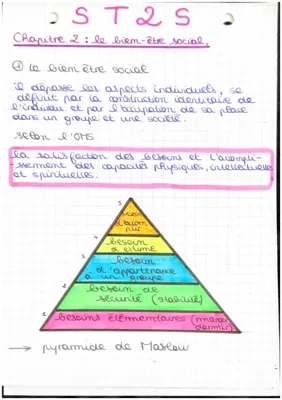 ST2S
Chapitre 2 : le bien-être social,
① le bien être social
il dépasse les aspects individuels, se
définit par la construction identitaire de
l'individu et par l'occupation de sa place
dans un groupe et une société.
selon l'OMS
la satisfaction des besoins et l'accompli-
-ssement des capacités physiques, intellectuelles
et spirituelles.
5
besoin
4
besoin
d'estime
3
besoin
d'appartenance
à un groupe
2
besoin de
sécurité (stabilité)
1
besoins élémentaires (manger
dormir)
→ pyramide de Maslow